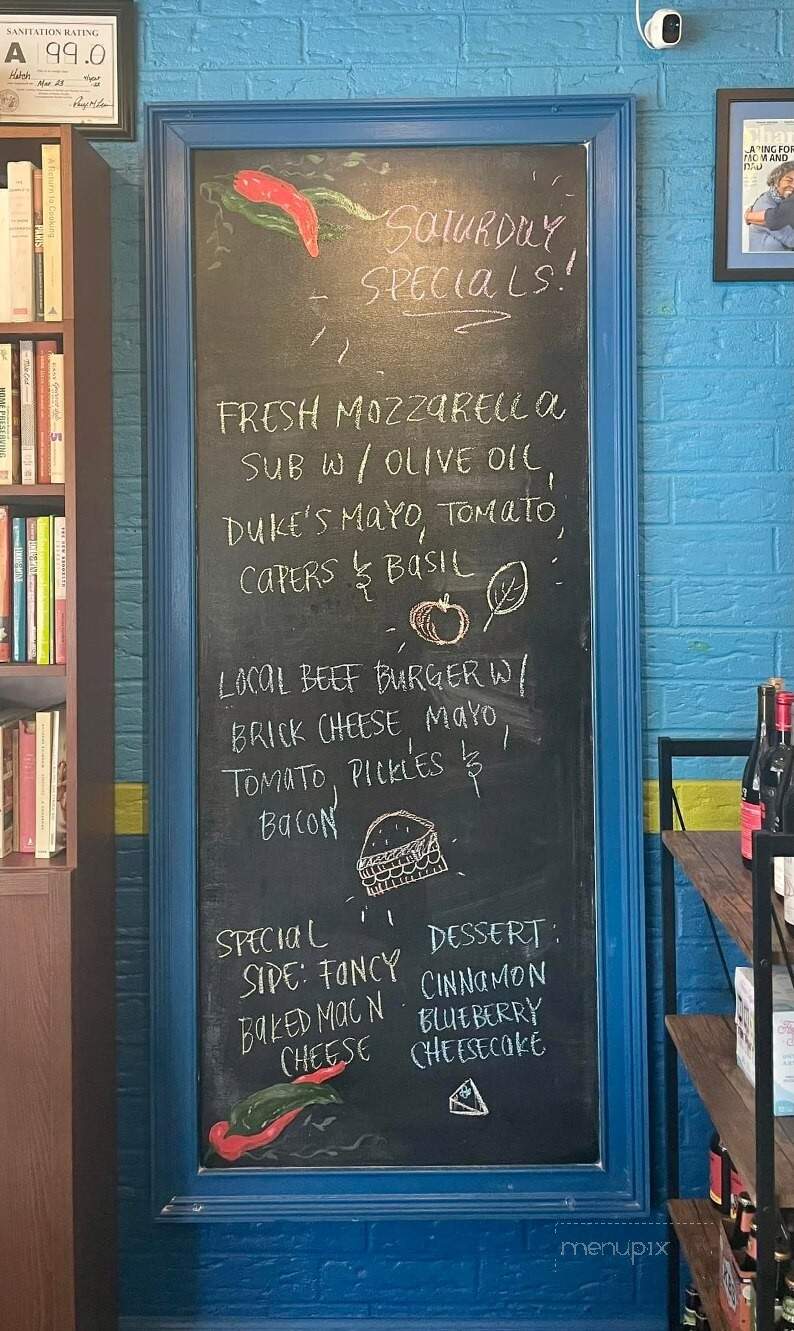 SANITATION RATING
A 99.0
Hatch
Mar 23
A Return to Cooking
HOME PRESERVING
CARING FOR
MOM AND
DAD
SATURDAY
SPECIALS!
FRESH MOZZARELLA
SUB W/ OLIVE OIL,
DUKE'S MAYO, TOMATO,
CAPERS & BASIL
LOCAL BEEF BURGER W/
BRICK CHEESE, MAYO,
TOMATO, PICKLES &
BACON
SPECIAL
SIDE: FANCY
BAKED MAC N
CHEESE
DESSERT:
CINNAMON
BLUEBERRY
CHEESECAKE
menupix